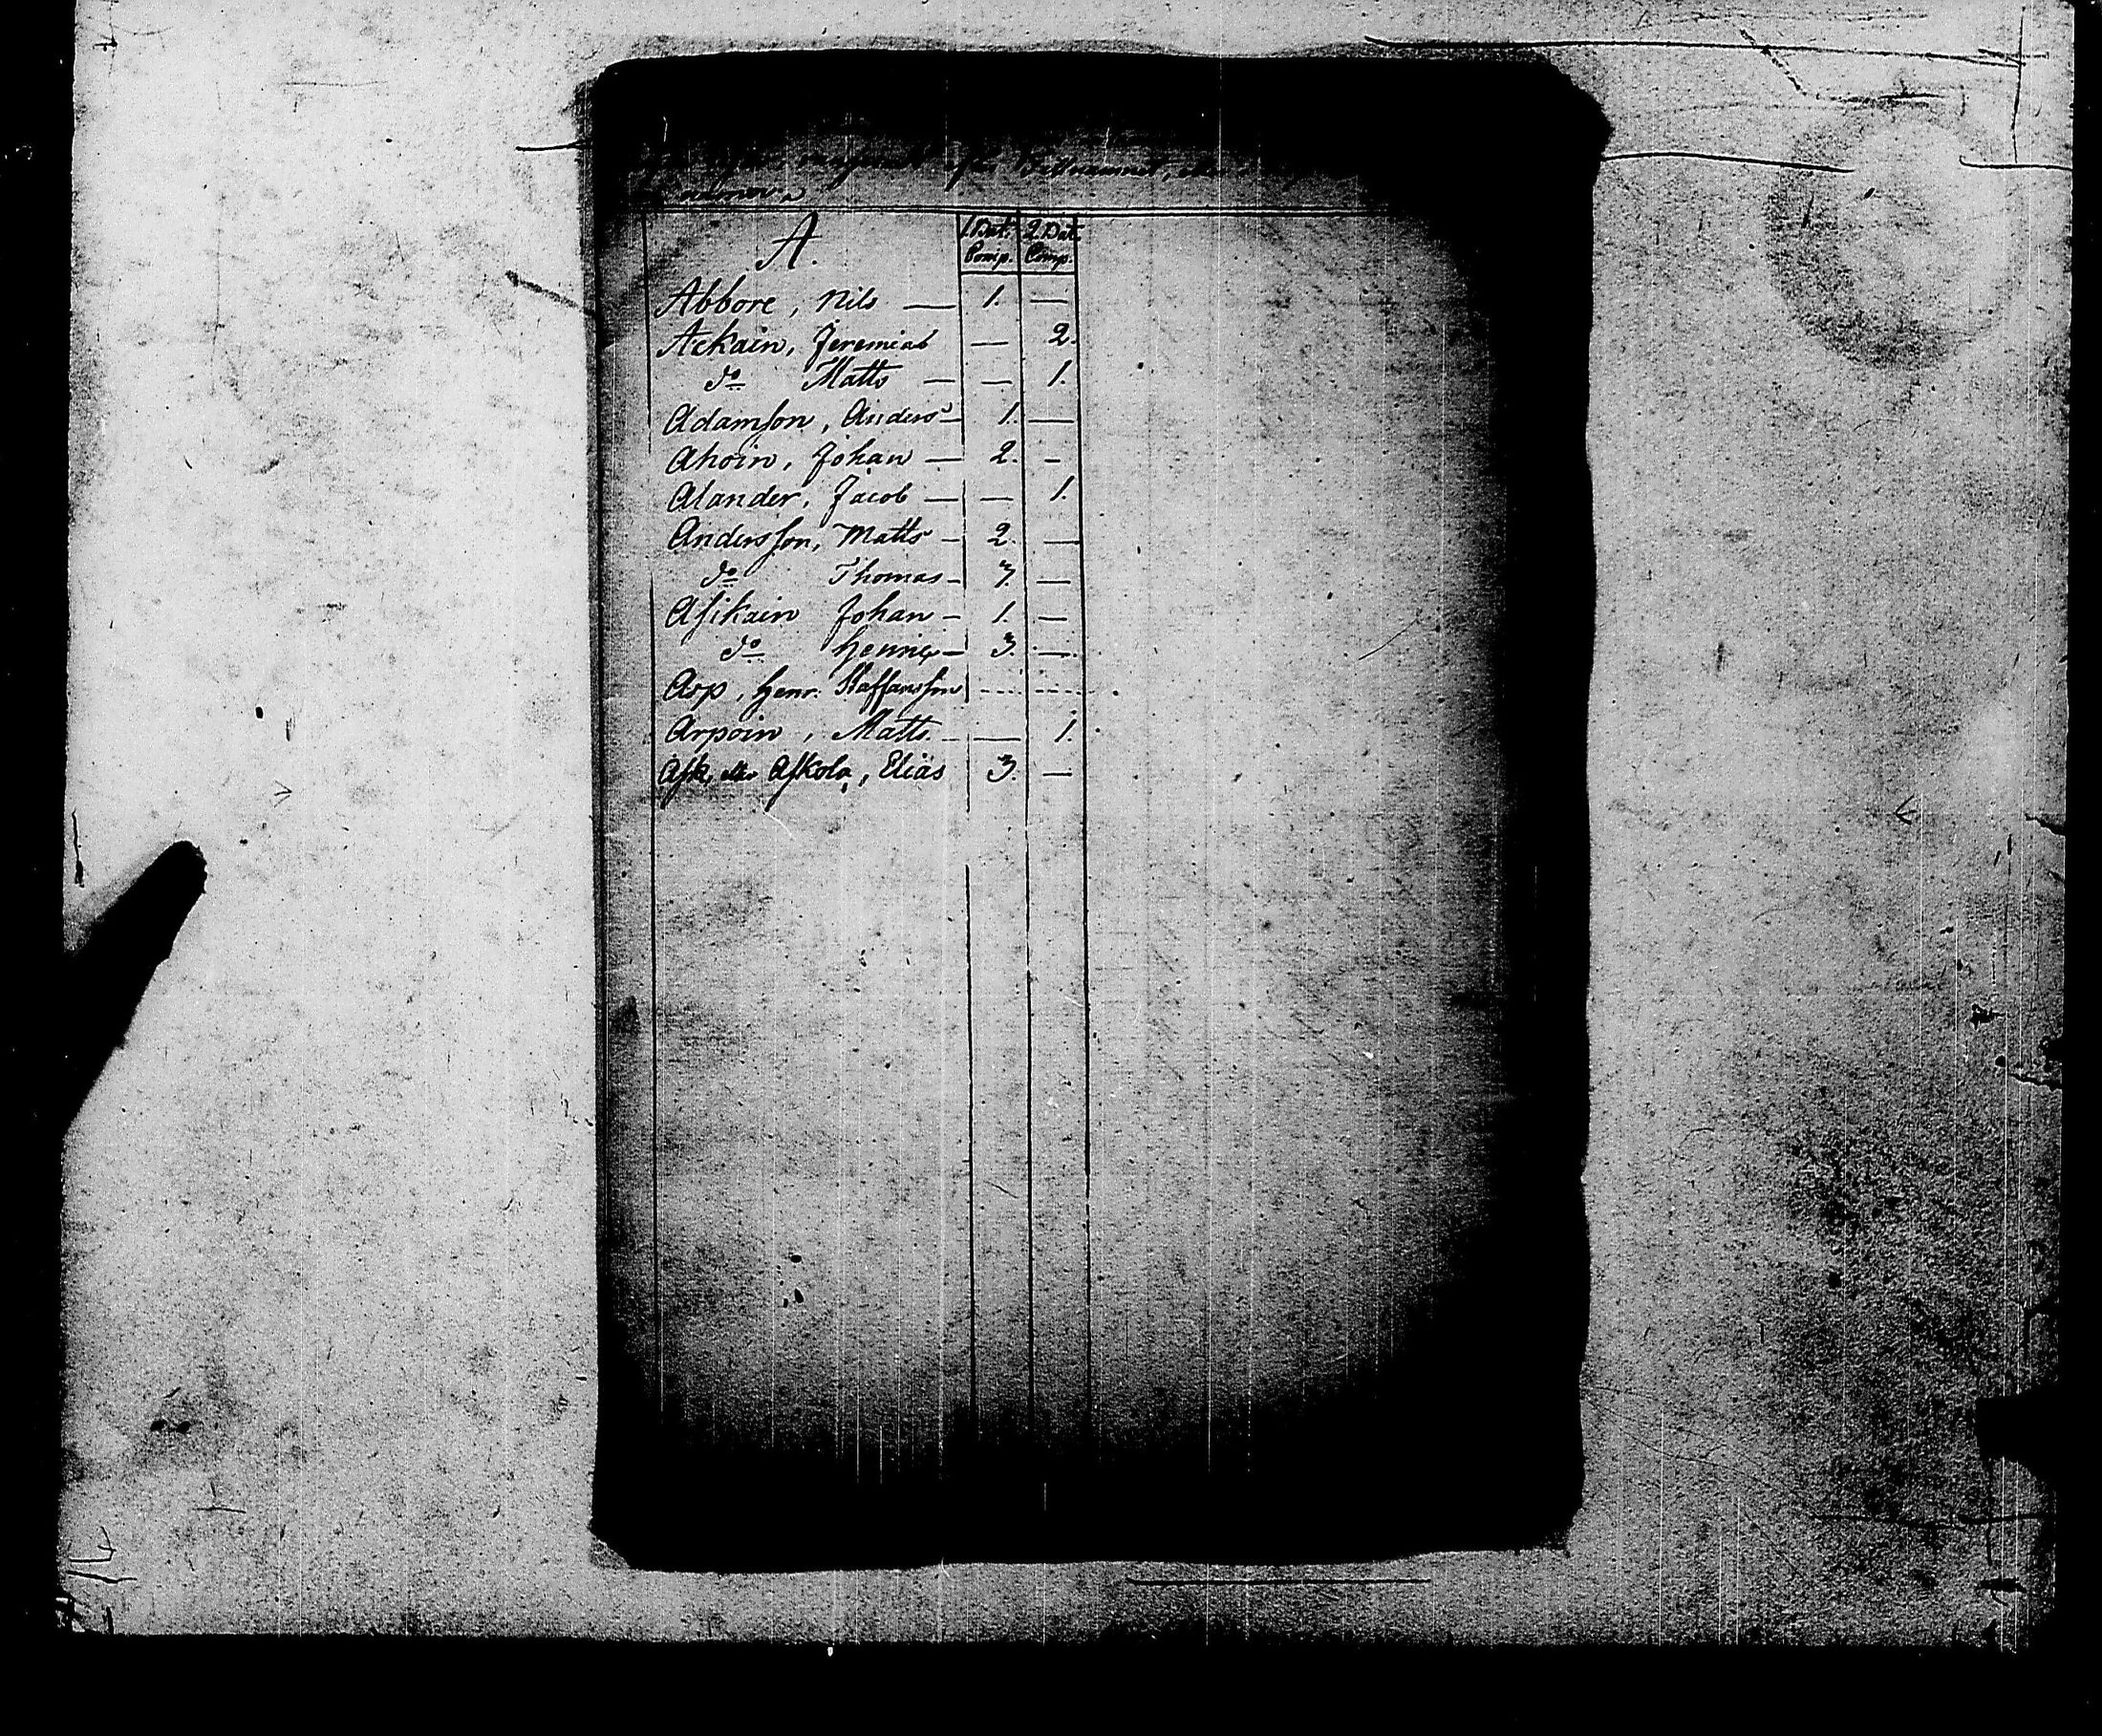 för Tillnamnet,
A.
1. Bat. Comp. 2. Bat. Comp.
Abbore, Nils — 1. —
Ackain, Jeremias — 2.
do Matts — — 1.
Adamſon, Anders — 1. —
Ahoin, Johan — 2. —
Alander, Jacob — — 1.
Andersſon, Matts — 2. —
do Thomas — 7. —
Aſikain Johan — 1. —
do Henric — 3. —
Asp, Henr. Staffansſon
Arpoin, Matts — — 1.
Aſk, eller Aſkola, Elias 3. —